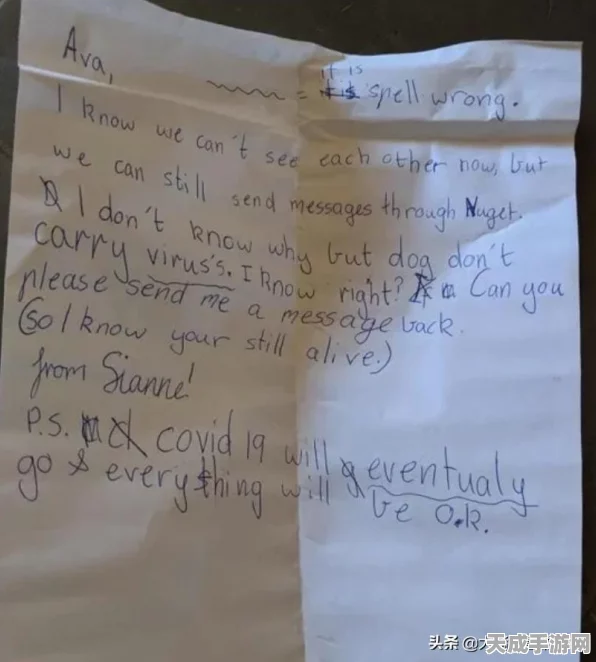 Ava,
= it is spell wrong.
I know we can't see each other now, but
we can still send messages through Nuget.
I don't know why but dog don't
carry virus's. I know right? Can you
please send me a message back.
(So I know your still alive.)
from Sianne!
P.S. covid 19 will eventualy
go & everything will be O.K.
头条 @大
天成手游网